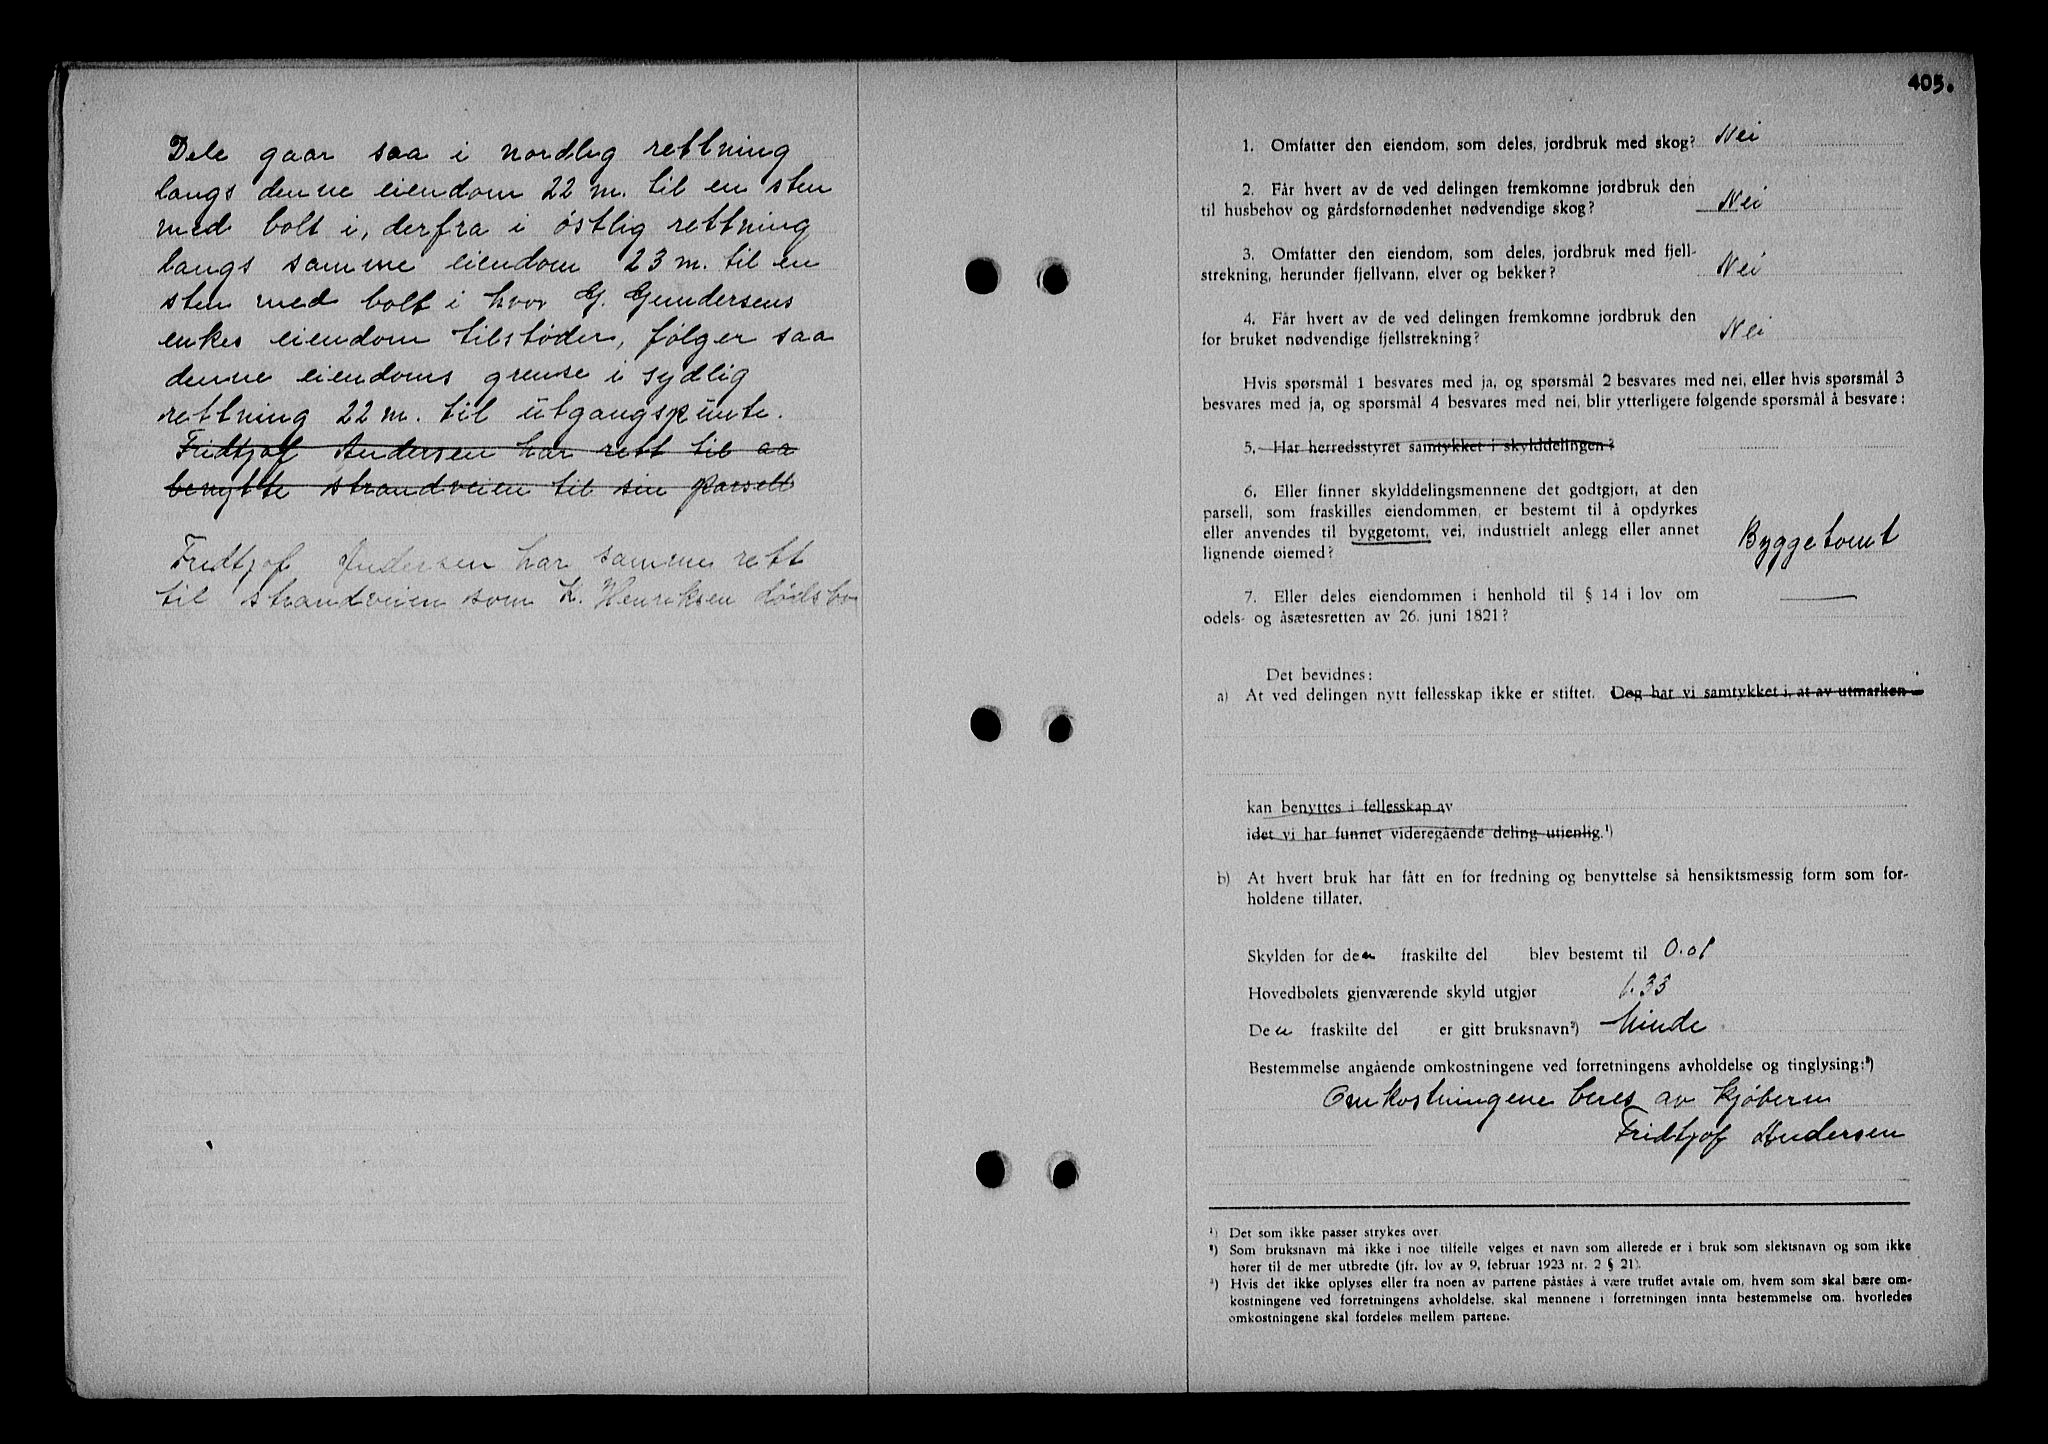 Dele gaar saa i nordlig rettning
langs denne eiendom 22 m. til en sten
med bolt i, derfra i østlig rettning
langs samme eiendom 23 m. til en
sten med bolt i hvor G. Gundersens
enkes eiendom tilstøder, følger saa
denne eiendoms grense i sydlig
rettning 22 m. til utgangspunte.
Fridtjof Andersen har rett til aa
benytte strandveien til sin parsell
Fridtjof Andersen har samme rett
til strandveien som K. Henriksen dødsbo
405.
1. Omfatter den eiendom, som deles, jordbruk med skog? Nei
2. Får hvert av de ved delingen fremkomne jordbruk den
til husbehov og gårdsfornødenhet nødvendige skog? Nei
3. Omfatter den eiendom, som deles, jordbruk med fjell-
strekning, herunder fjellvann, elver og bekker? Nei
4. Får hvert av de ved delingen fremkomne jordbruk den
for bruket nødvendige fjellstrekning? Nei
Hvis spørsmål 1 besvares med ja, og spørsmål 2 besvares med nei, eller hvis spørsmål 3
besvares med ja, og spørsmål 4 besvares med nei, blir ytterligere følgende spørsmål å besvare:
5. Har herredsstyret samtykket i skylddelingen?
6. Eller finner skylddelingsmennene det godtgjort, at den
parsell, som fraskilles eiendommen, er bestemt til å opdyrkes
eller anvendes til byggetomt, vei, industrielt anlegg eller annet
lignende øiemed? Byggetomt
7. Eller deles eiendommen i henhold til § 14 i lov om
odels- og åsætesretten av 26. juni 1821?
Det bevidnes:
a) At ved delingen nytt fellesskap ikke er stiftet. Dog har vi samtykket i, at av utmarken
kan benyttes i fellesskap av
idet vi har funnet videregående deling utjenlig.¹)
b) At hvert bruk har fått en for fredning og benyttelse så hensiktsmessig form som for-
holdene tillater.
Skylden for den fraskilte del blev bestemt til 0.01
Hovedbølets gjenværende skyld utgjør 1.33
Den fraskilte del er gitt bruksnavn²) Minde
Bestemmelse angående omkostningene ved forretningens avholdelse og tinglysing:³)
Omkostningene beres av kjøberen
Fridtjof Andersen
¹) Det som ikke passer strykes over.
²) Som bruksnavn må ikke i noe tilfelle velges et navn som allerede er i bruk som slektsnavn og som ikke
hører til de mer utbredte (jfr. lov av 9. februar 1923 nr. 2 § 21).
³) Hvis det ikke oplyses eller fra noen av partene påståes å være truffet avtale om, hvem som skal bære om-
kostningene ved forretningens avholdelse, skal mennene i forretningen innta bestemmelse om, hvorledes
omkostningene skal fordeles mellem partene.